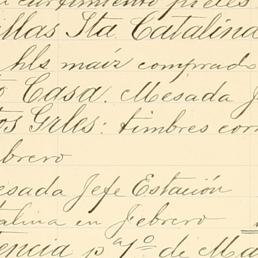 curtimiento pieles
illas Sta Catalina
hls maíz comprado
Casa. Mesada J
tos Grles: timbres corr
ebrero
esada Jefe Estación
talina en Febrero
encia pª 1º de Ma